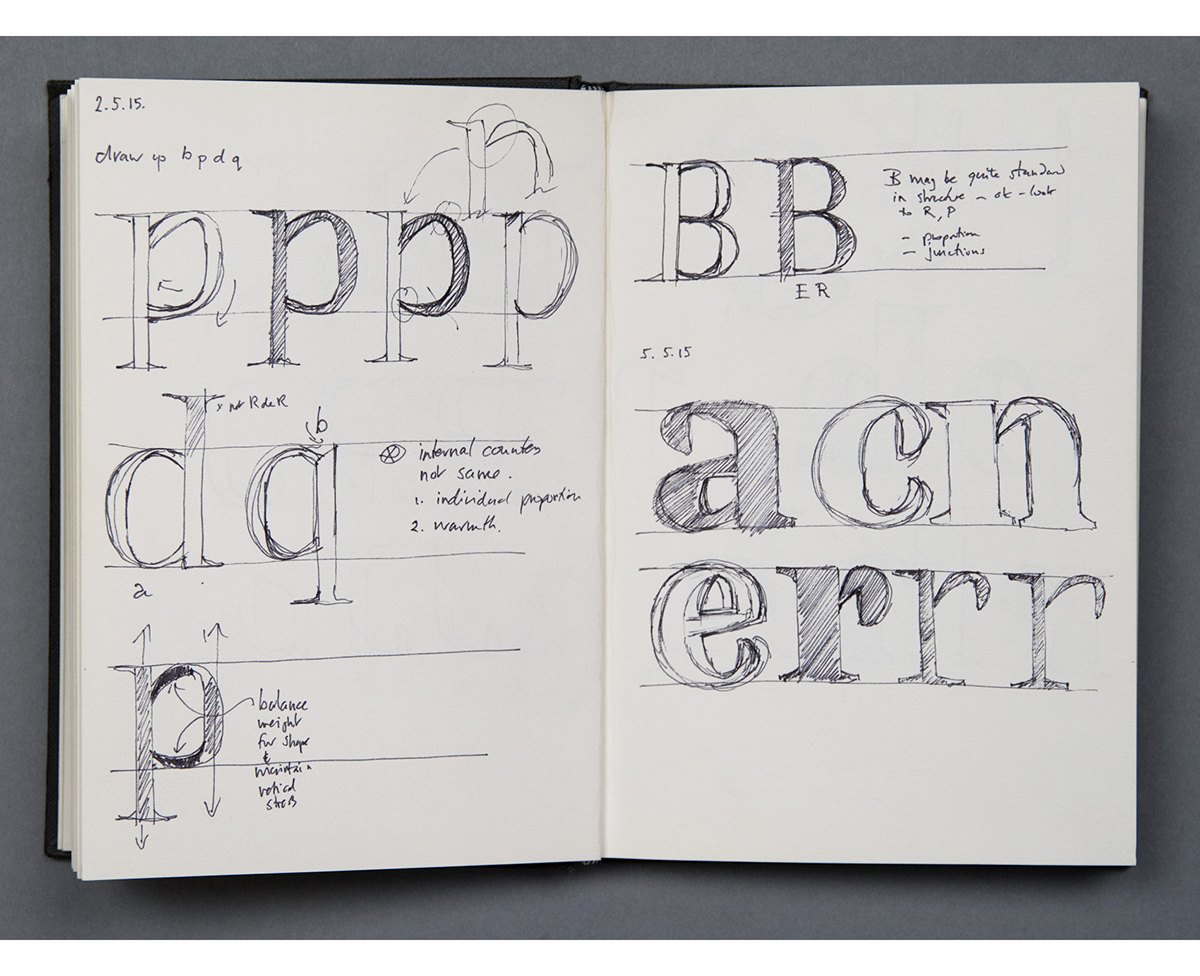 2.5.15.
draw up b p d q
p p p p
x not R de R
d q
b
internal counters
not same.
1. individual proportion
2. warmth.
a
p
balance
weight
for shape
&
maintain
vertical
stress
B B
B may be quite standard
in structure – ok – look
to R, P
– proportion
– junctions
E R
5.5.15
a c n
e r r r